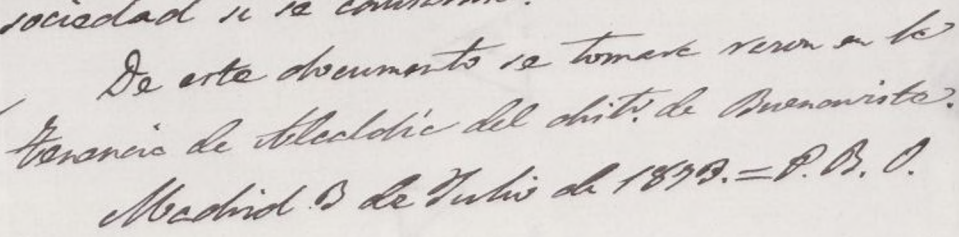 sociedad si se
De este documento se tomará razon en la
Tenencia de Alcaldia del distº. de Buenavista.
Madrid 3 de Julio de 1893. = P. B. O.